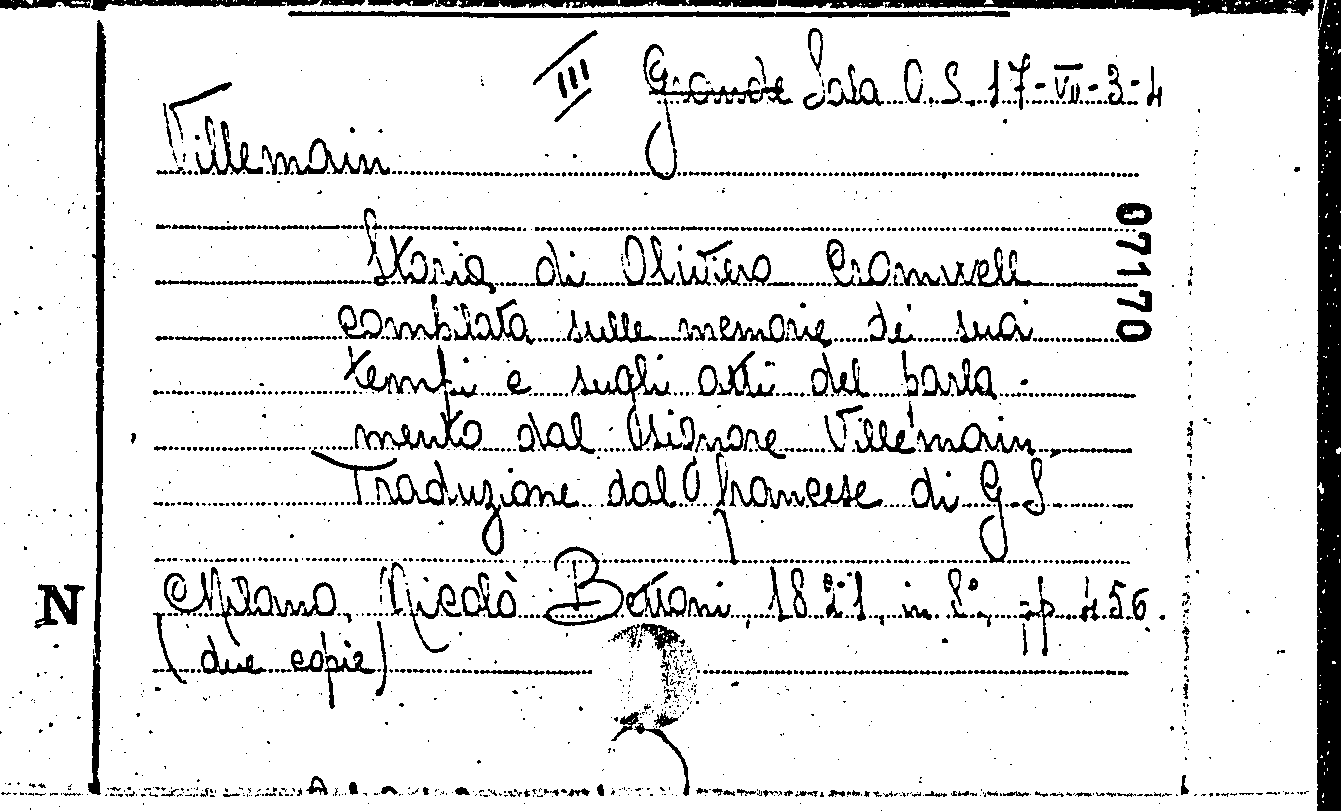 III Grande Sala O.S. 17-VII-3-4
Villemain
07170
Storia di Oliviero Cromwell
compilata sulle memorie dei suoi
tempi e sugli atti del parla-
mento dal Signore Villemain.
Traduzione dal francese di G.S.
N
Milano, Nicolò Bettoni, 1821, in 8°, pp 456.
(due copie)